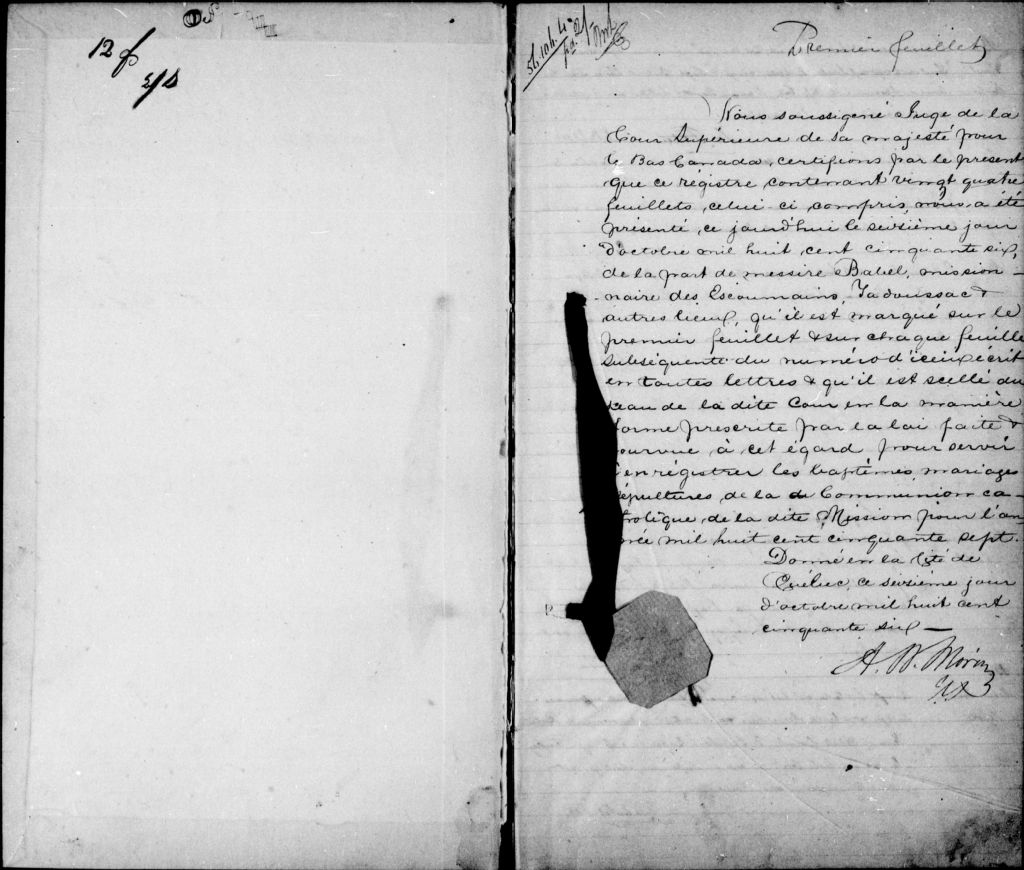 12 f
Premier feuillet
Nous soussigné Juge de la
Cour Supérieure de sa majesté pour
le Bas Canada, certifions par le présent
que ce régistre contenant vingt quatre
feuillets, celui ci compris, nous a été
présenté, ce jourd'hui le seizième jour
d'octobre mil huit cent cinquante six,
de la part de messire Babel, mission-
naire des Escoumains, Tadoussac &
autres lieux, qu'il est marqué sur le
premier feuillet & sur chaque feuille
subséquente du numéro d'iceux écrit
en toutes lettres & qu'il est scellé du
ceau de la dite Cour en la manière
forme prescrite par la loi faite &
ourvue à cet égard pour servir
enrégistrer les baptêmes, mariages
épultures, de la de Communion ca-
tholique de la dite Mission pour l'an-
née mil huit cent cinquante sept.
Donné en la Cité de
Québec, ce seizième jour
d'octobre mil huit cent
cinquante six —
A. N. Morin